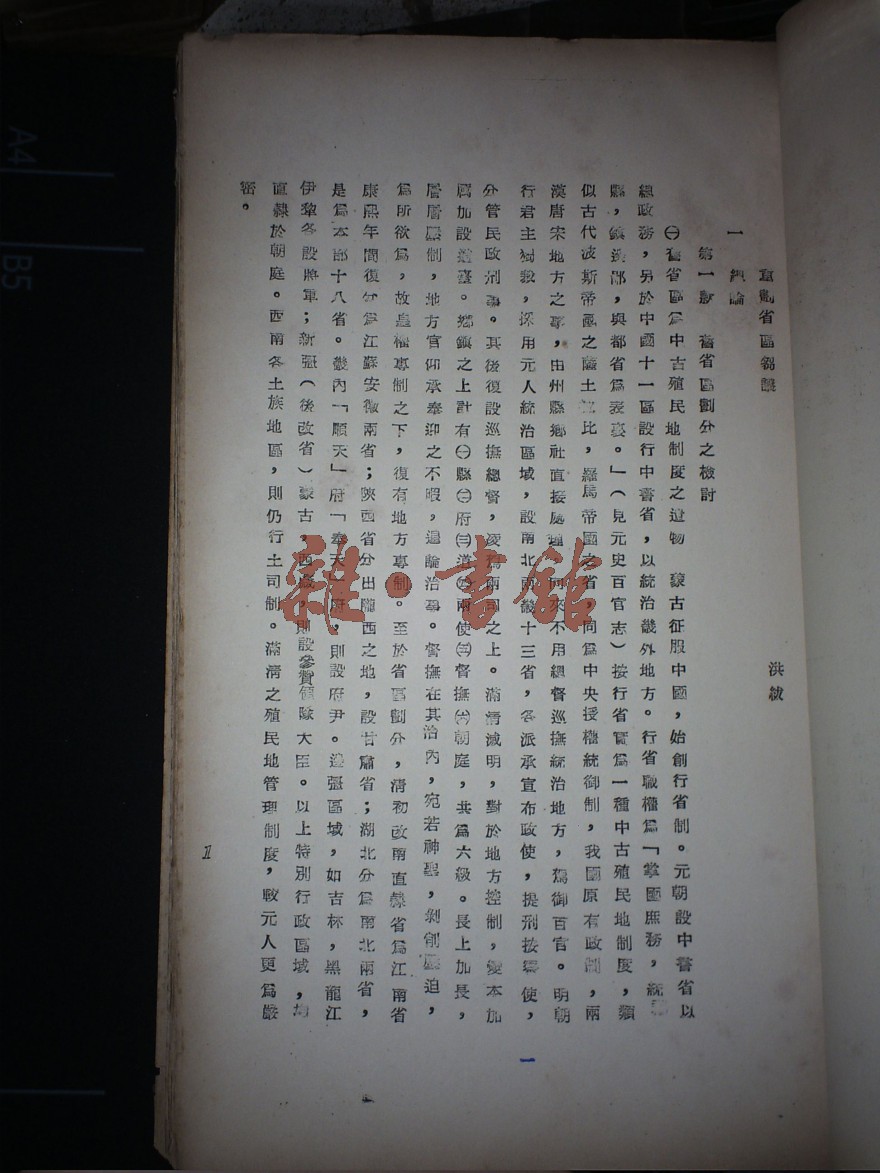 重劃省區芻議
洪紱
一 總論
第一款 舊省區劃分之檢討
㊀舊省區爲中古殖民地制度之遺物 蒙古征服中國,始創行省制。元朝設中書省以
總政務,另於中國十一區設行中書省,以統治畿外地方。行省職權爲「掌國庶務,統郡
縣,鎮邊鄙,與都省爲表裏。」(見元史百官志)按行省實爲一種中古殖民地制度,類
似古代波斯帝國之薩土拉比,羅馬帝國之省,同爲中央授權統御制,我國原有政制,兩
漢唐宋地方之事,由州縣鄉社直接處理,向來不用總督巡撫統治地方,駕御百官。明朝
行君主獨裁,採用元人統治區域,設南北兩畿十三省,各派承宣布政使,提刑按察使,
分管民政刑事。其後復設巡撫總督,凌駕兩司之上。滿清滅明,對於地方控制,變本加
厲加設道臺。鄉鎮之上計有㊀縣㊁府㊂道㊃兩使㊄督撫㊅朝庭,共爲六級。長上加長,
層層壓制,地方官仰承奉迎之不暇,遑論治事。督撫在其治內,宛若神聖,剝削壓迫,
爲所欲爲,故皇權專制之下,復有地方專制。至於省區劃分,清初改南直隸省爲江南省
康熙年間復分爲江蘇安徽兩省;陝西省分出隴西之地,設甘肅省;湖北分爲南北兩省,
是爲本部十八省。畿內「順天」府「奉天」府,則設府尹。邊彊區域,如吉林,黑龍江
伊犂各設將軍;新彊(後改省)蒙古,西藏,則設參贊領隊大臣。以上特別行政區域,均
直隸於朝庭。西南各土族地區,則仍行土司制。滿清之殖民地管理制度,較元人更爲嚴
密。
1
一
雜·書館
A4
B5